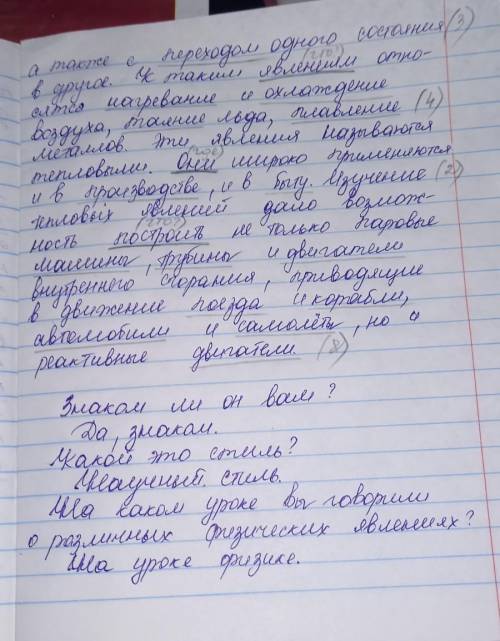 а также с переходом одного состояния (3)
в другое. К таким явлениям отно-
сятся нагревание и охлаждение
воздуха, таяние льда, плавление (4)
металлов. Эти явления называются
тепловыми. Они широко применяются
и в производстве, и в быту. Изучение (2)
тепловых явлений дало возмож-
ность построить не только паровые
машины, трубины и двигатели
внутреннего сгорания, приводящие
в движение поезда и корабли,
автомобили и самолёты, но и
реактивные двигатели. (8)
Знаком ли он вам?
Да, знаком.
Какой это стиль?
Научный стиль.
На каком уроке вы говорили
о различных физических явлениях?
На уроке физике.